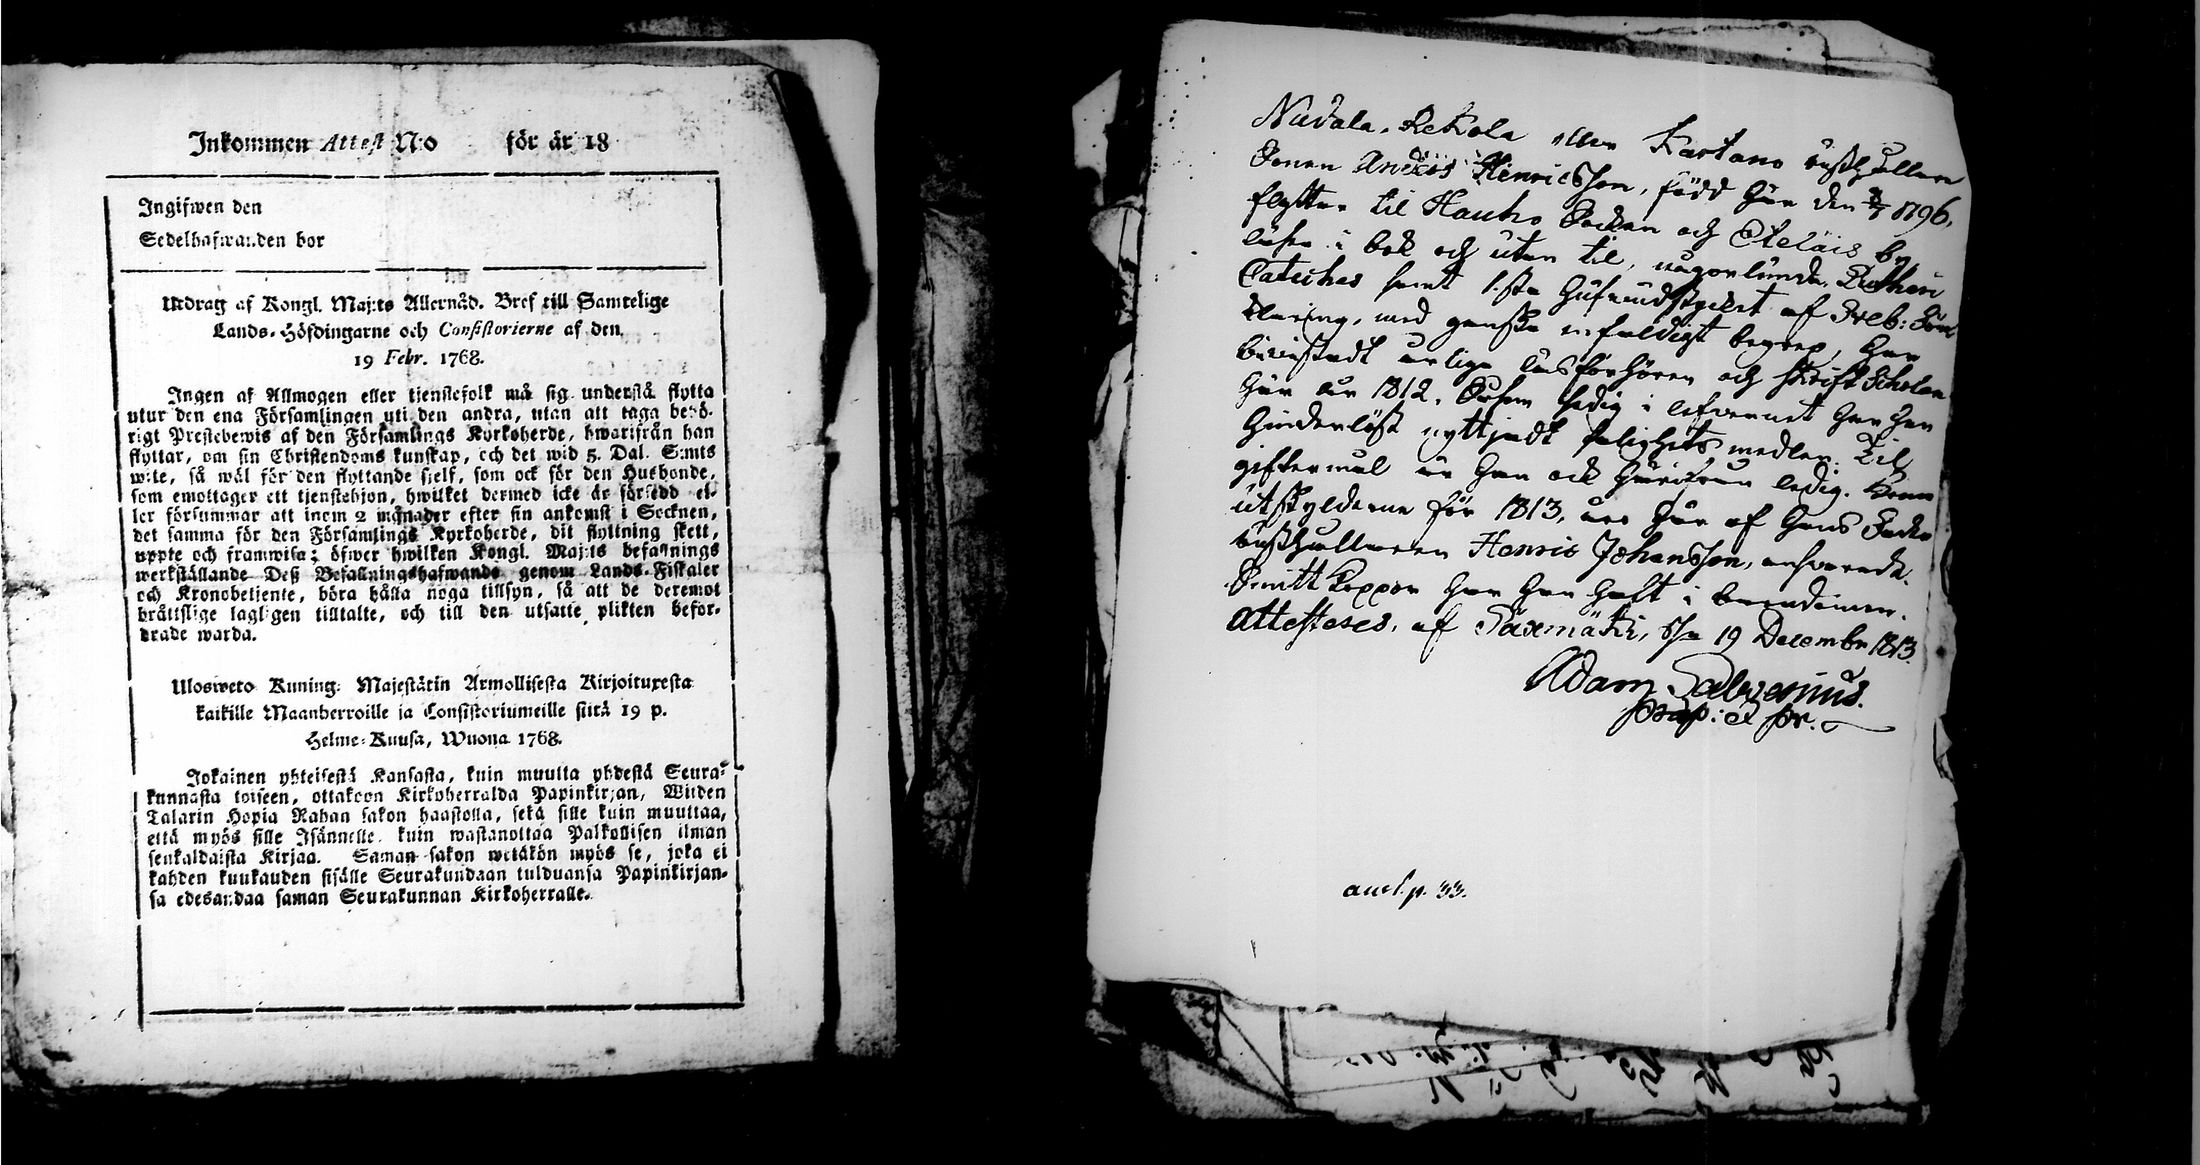 Inkommen Attest N:o för år 18
Ingifwen den
Sedelhafwanden bor
Utdrag af Kongl. Maj:ts Allernåd. Bref till Samtelige
Lands-Höfdingarne och Consistorierne af den
19 Febr. 1768.
Ingen af Allmogen eller tienstefolk må sig understå flytta
utur den ena Församlingen uti den andra, utan att taga behö-
rigt Prestebewis af den Församlings Kyrkoherde, hwarifrån han
flyttar, om sin Christendoms kunskap, och det wid 5. Dal. S:mts
wite, så wäl för den flyttande sielf, som ock för den Husbonde,
som emottager ett tienstehjon, hwilket dermed icke är försedd el-
ler försummar att inom 2 månader efter sin ankomst i Socknen,
det samma för den Församlings Kyrkoherde, dit flyttning skett,
uppte och framwisa; öfwer hwilken Kongl. Maj:ts befallnings
werkställande Deß Befallningshafwande genom Lands-Fiskaler
och Kronobetjente, böra hålla noga tillsyn, så att de deremot
bråttslige lagligen tilltalte, och till den utsatte plikten befor-
drade warda.
Ulosweto Kuning: Majestätin Armollisesta Kirjoituxesta
kaikille Maanherroille ja Consistoriumeille siitä 19 p.
Helme-Kuusa, Wuona 1768.
Jokainen yhteisestä Kansasta, kuin muutta yhdestä Seura-
kunnasta toiseen, ottakoon Kirkoherralda Papinkirjan, Wiiden
Talarin Hopia Rahan sakon haastolla, sekä sille kuin muuttaa,
että myös sille Isännelle, kuin wastanottaa Palkollisen ilman
senkaldaista Kirjaa. Saman sakon wetäkön myös se, joka ei
kahden kuukauden sisälle Seurakundaan tulduansa Papinkirjan-
sa edesandaa saman Seurakunnan Kirkoherralle.
Rekola eller Kartano rusthållare
Sonen Henricsson, född här den 1796,
flyttar til Hauho Socken och Eteläis by,
läser i bok och utan til, någorlunda, Lutheri
Cateches samt af Sveb: För
klaring, med ganska enfaldigt begrep, har
bivistadt årliga läsförhören och skrift Scholan
här år 1812. Såsom sedig i lefvernet har han
hinderlöst nyttjadt salighets medlen. Til
giftermål är han ock härifrån ledig. Krono
utskylderne för 1813, äro här af hans Fader
rusthållaren Henric Johansson, ansvarade.
Smitt Koppor har han haft i barndomen.
Attesteres, af Säxmäki, d. 19 Decembr 1813.
Adam
p. 33.